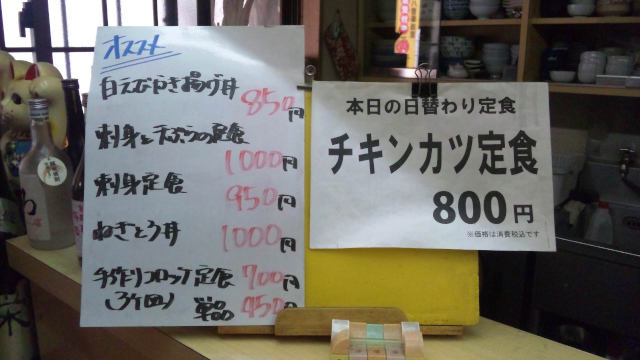 オススメ
白えびかき揚げ丼
850円
刺身と天ぷらの定食
1000円
刺身定食
950円
ねぎとろ丼
1000円
手作りコロッケ定食 700円
(3個) 単品 450円
本日の日替わり定食
チキンカツ定食
800円
※価格は消費税込です